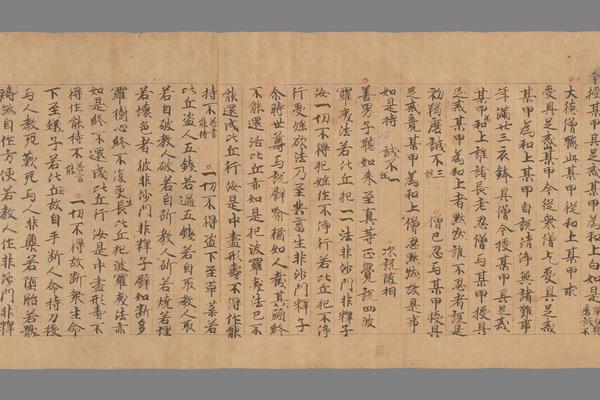 今授某甲具足戒某甲為和上白如是
大德僧聽此某甲從和上某甲求
受具足戒某甲今從眾僧乞具足戒
某甲為和上某甲自說清淨無諸難事
年滿廿三衣鉢具僧今授某甲具足戒
某甲為和上誰諸長老忍僧與某甲授具
足戒某甲為和上者默然誰不忍者說是
初羯磨誠不三說 僧已忍與某甲授具
足戒竟某甲為和上僧忍默然故是事
如是持 誠不一 次說隨相
善男子聽如來至真等正覺說四波
羅夷法若比丘犯一一法非沙門非釋子
汝一切不得犯婬作不淨行若比丘犯不淨
行受婬欲法乃至共畜生非沙門非釋子
尒時世尊与說譬喻猶如人截其頭終
不能還活比丘亦如是犯波羅夷法已不
能還成比丘行汝是中盡形壽不得作能
持不答言能持 一切不得盜下至草葉若
比丘盜人五錢若過五錢若自取教人取
若自破教人破若自斫教人斫若燒若埋
若壞色者彼非沙門非釋子譬如斷多
羅樹心終不復更生長比丘犯波羅夷法亦
如是終不還成比丘行汝是中盡形壽不
得作能持不答言能 一切不得故斷眾生命
下至蟻子若比丘故自手斷人命持刀授
与人教死歎死与人非藥若墮胎若厭
禱殺自作方便若教人作非沙門非釋